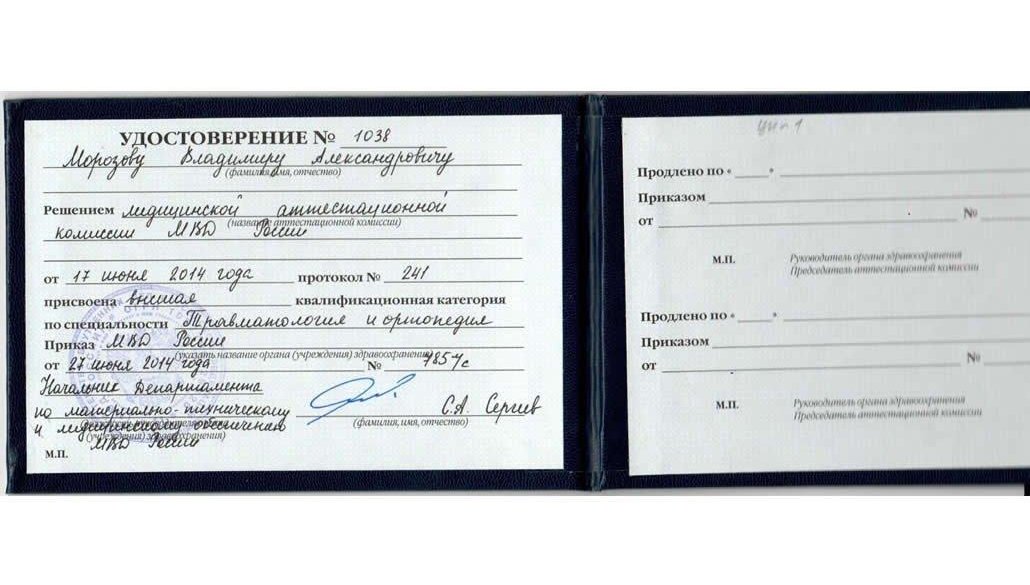 УДОСТОВЕРЕНИЕ № 1038
Морозову Владимиру Александровичу
(фамилия, имя, отчество)
Решением медицинской аттестационной
(название аттестационной комиссии)
комиссии МВД России
от 17 июня 2014 года протокол № 241
присвоена высшая квалификационная категория
по специальности Травматология и ортопедия
Приказ МВД России
(указать название органа (учреждения) здравоохранения)
от 27 июня 2014 года № 785 л/с
Начальник Департамента
по материально-техническому
и медицинскому обеспечению
(учреждения) здравоохранения)
МВД России
С.А. Сергеев
(фамилия, имя, отчество)
М.П.
Продлено по « »
Приказом
от №
М.П. Руководитель органа здравоохранения
Председатель аттестационной комиссии
Продлено по « »
Приказом
от №
М.П. Руководитель органа здравоохранения
Председатель аттестационной комиссии